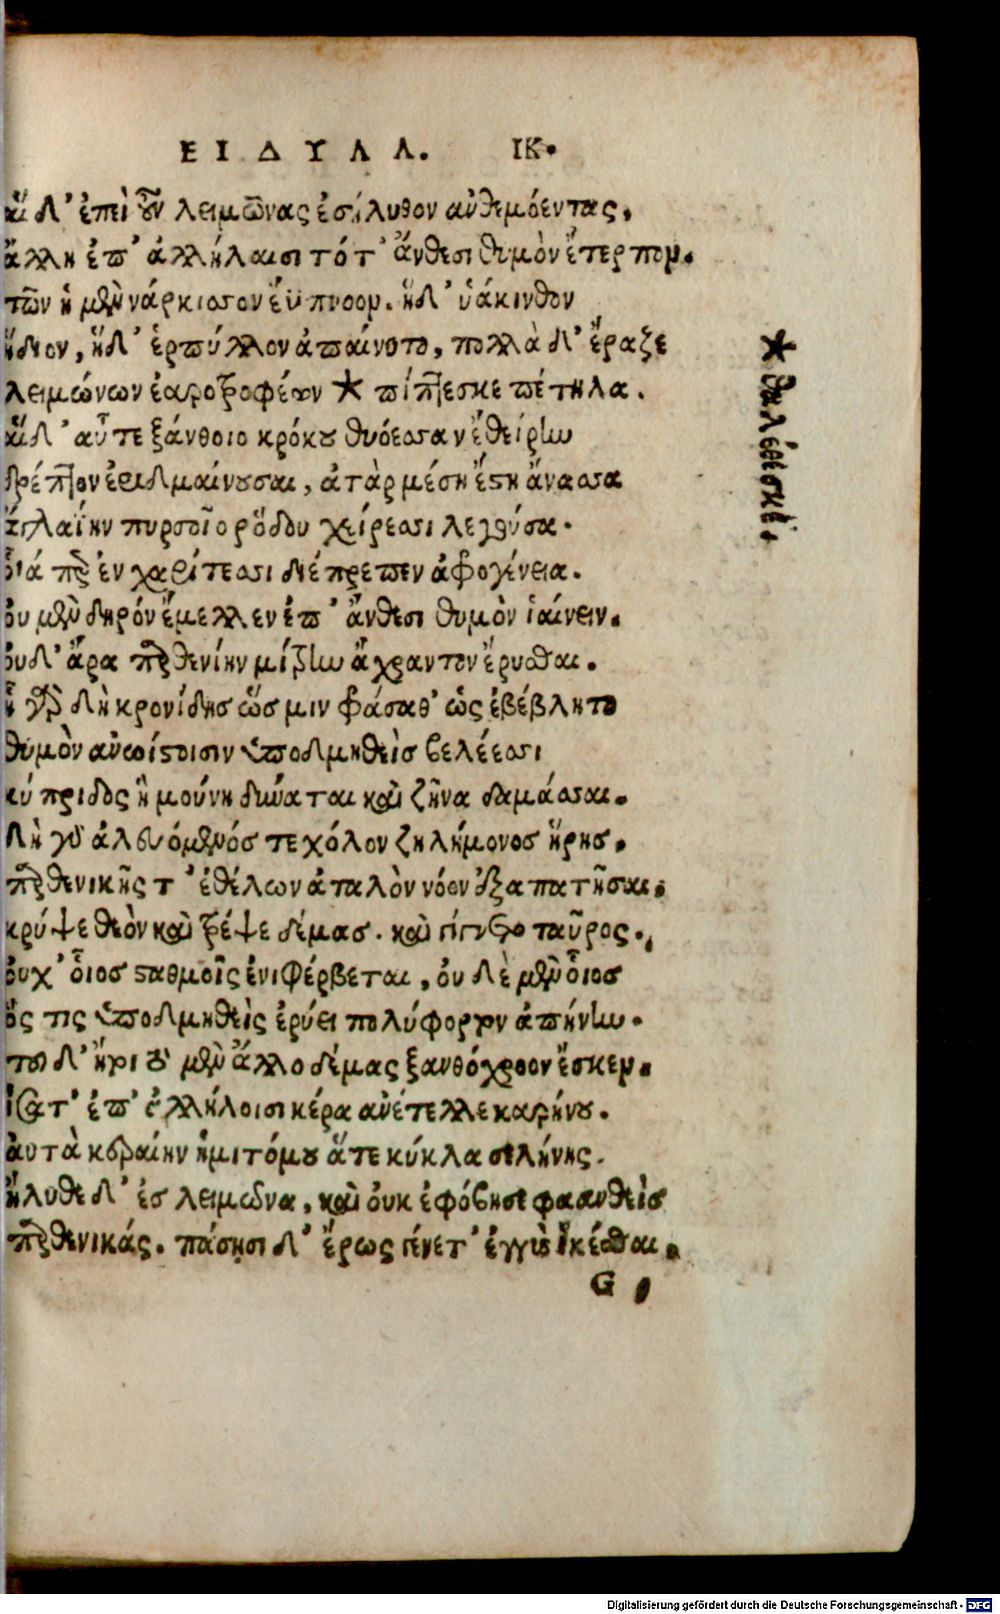 ΕΙΔΥΛΛ. ΙΚ.
αἵ δ' ἐπεὶ οὖν λειμῶνας ἐσήλυθον ἀνθεμόεντας,
ἄλλη ἐπ' ἀλλήλαισι τότ' ἄνθεσι θυμὸν ἔτερπον.
τῶν ἡ μὲν νάρκισσον ἐΰπνοον. ἡ δ' ὑάκινθον
ἡ δ' ἴον, ἡ δ' ἑρπύλλον ἀπαίνυτο, πολλὰ δ' ἔραζε
λειμώνων ἐαροτροφέων * πίπτεσκε πέτηλα.
* θαλέθεσκε.
αἵ δ' αὖτε ξάνθοιο κρόκου θυόεσσαν ἐθείρην
δρέπτον ἐριδμαίνουσαι, ἀτὰρ μέση ἔστη ἄνασσα
ἀγλαΐην πυρσοῖο ῥόδου χείρεσσι λέγουσα.
οἷά περ ἐν χαρίτεσσι διέπρεπεν ἀφρογένεια.
οὐ μὲν δηρὸν ἔμελλεν ἐπ' ἄνθεσι θυμὸν ἰαίνειν.
οὐδ' ἄρα παρθενίην μίτρην ἄχραντον ἔρυσθαι.
ἦ γὰρ δὴ κρονίδης ὥς μιν φράσαθ' ὣς ἐβέβλητο
θυμὸν ἀνωίστοισιν ὑποδμηθεὶς βελέεσσι
κύπριδος ἣ μούνη δύναται καὶ ζῆνα δαμάσσαι.
δὴ γὰρ ἀλευόμενός τε χόλον ζηλήμονος ἥρης.
παρθενικῆς τ' ἐθέλων ἀταλὸν νόον ἐξαπατῆσαι.
κρύψε θεὸν καὶ τρέψε δέμας. καὶ γίγνετο ταῦρος.
οὐχ' οἷος σταθμοῖς ἐνιφέρβεται, οὐδὲ μὲν οἷος
ὅς τις ὑποδμηθεὶς ἐρύει πολύφορτον ἀπήνην.
τοῦ δ' ἤτοι τὸ μὲν ἄλλο δέμας ξανθόχροον ἔσκεν.
ἶσά τ' ἐπ' ἀλλήλοισι κέρα ἀνέτελλε καρήνου.
αὐτὰ κεραίην ἡμιτόμου ἅτε κύκλα σελήνης.
ἤλυθε δ' ἐς λειμῶνα, καὶ οὐκ ἐφόβησε φαανθεὶς
παρθενικάς. πάσησι δ' ἔρως γένετ' ἐγγὺς ἱκέσθαι.
G